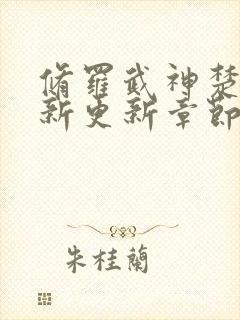 脩羅武神楚
新更新章節
朱桂蘭